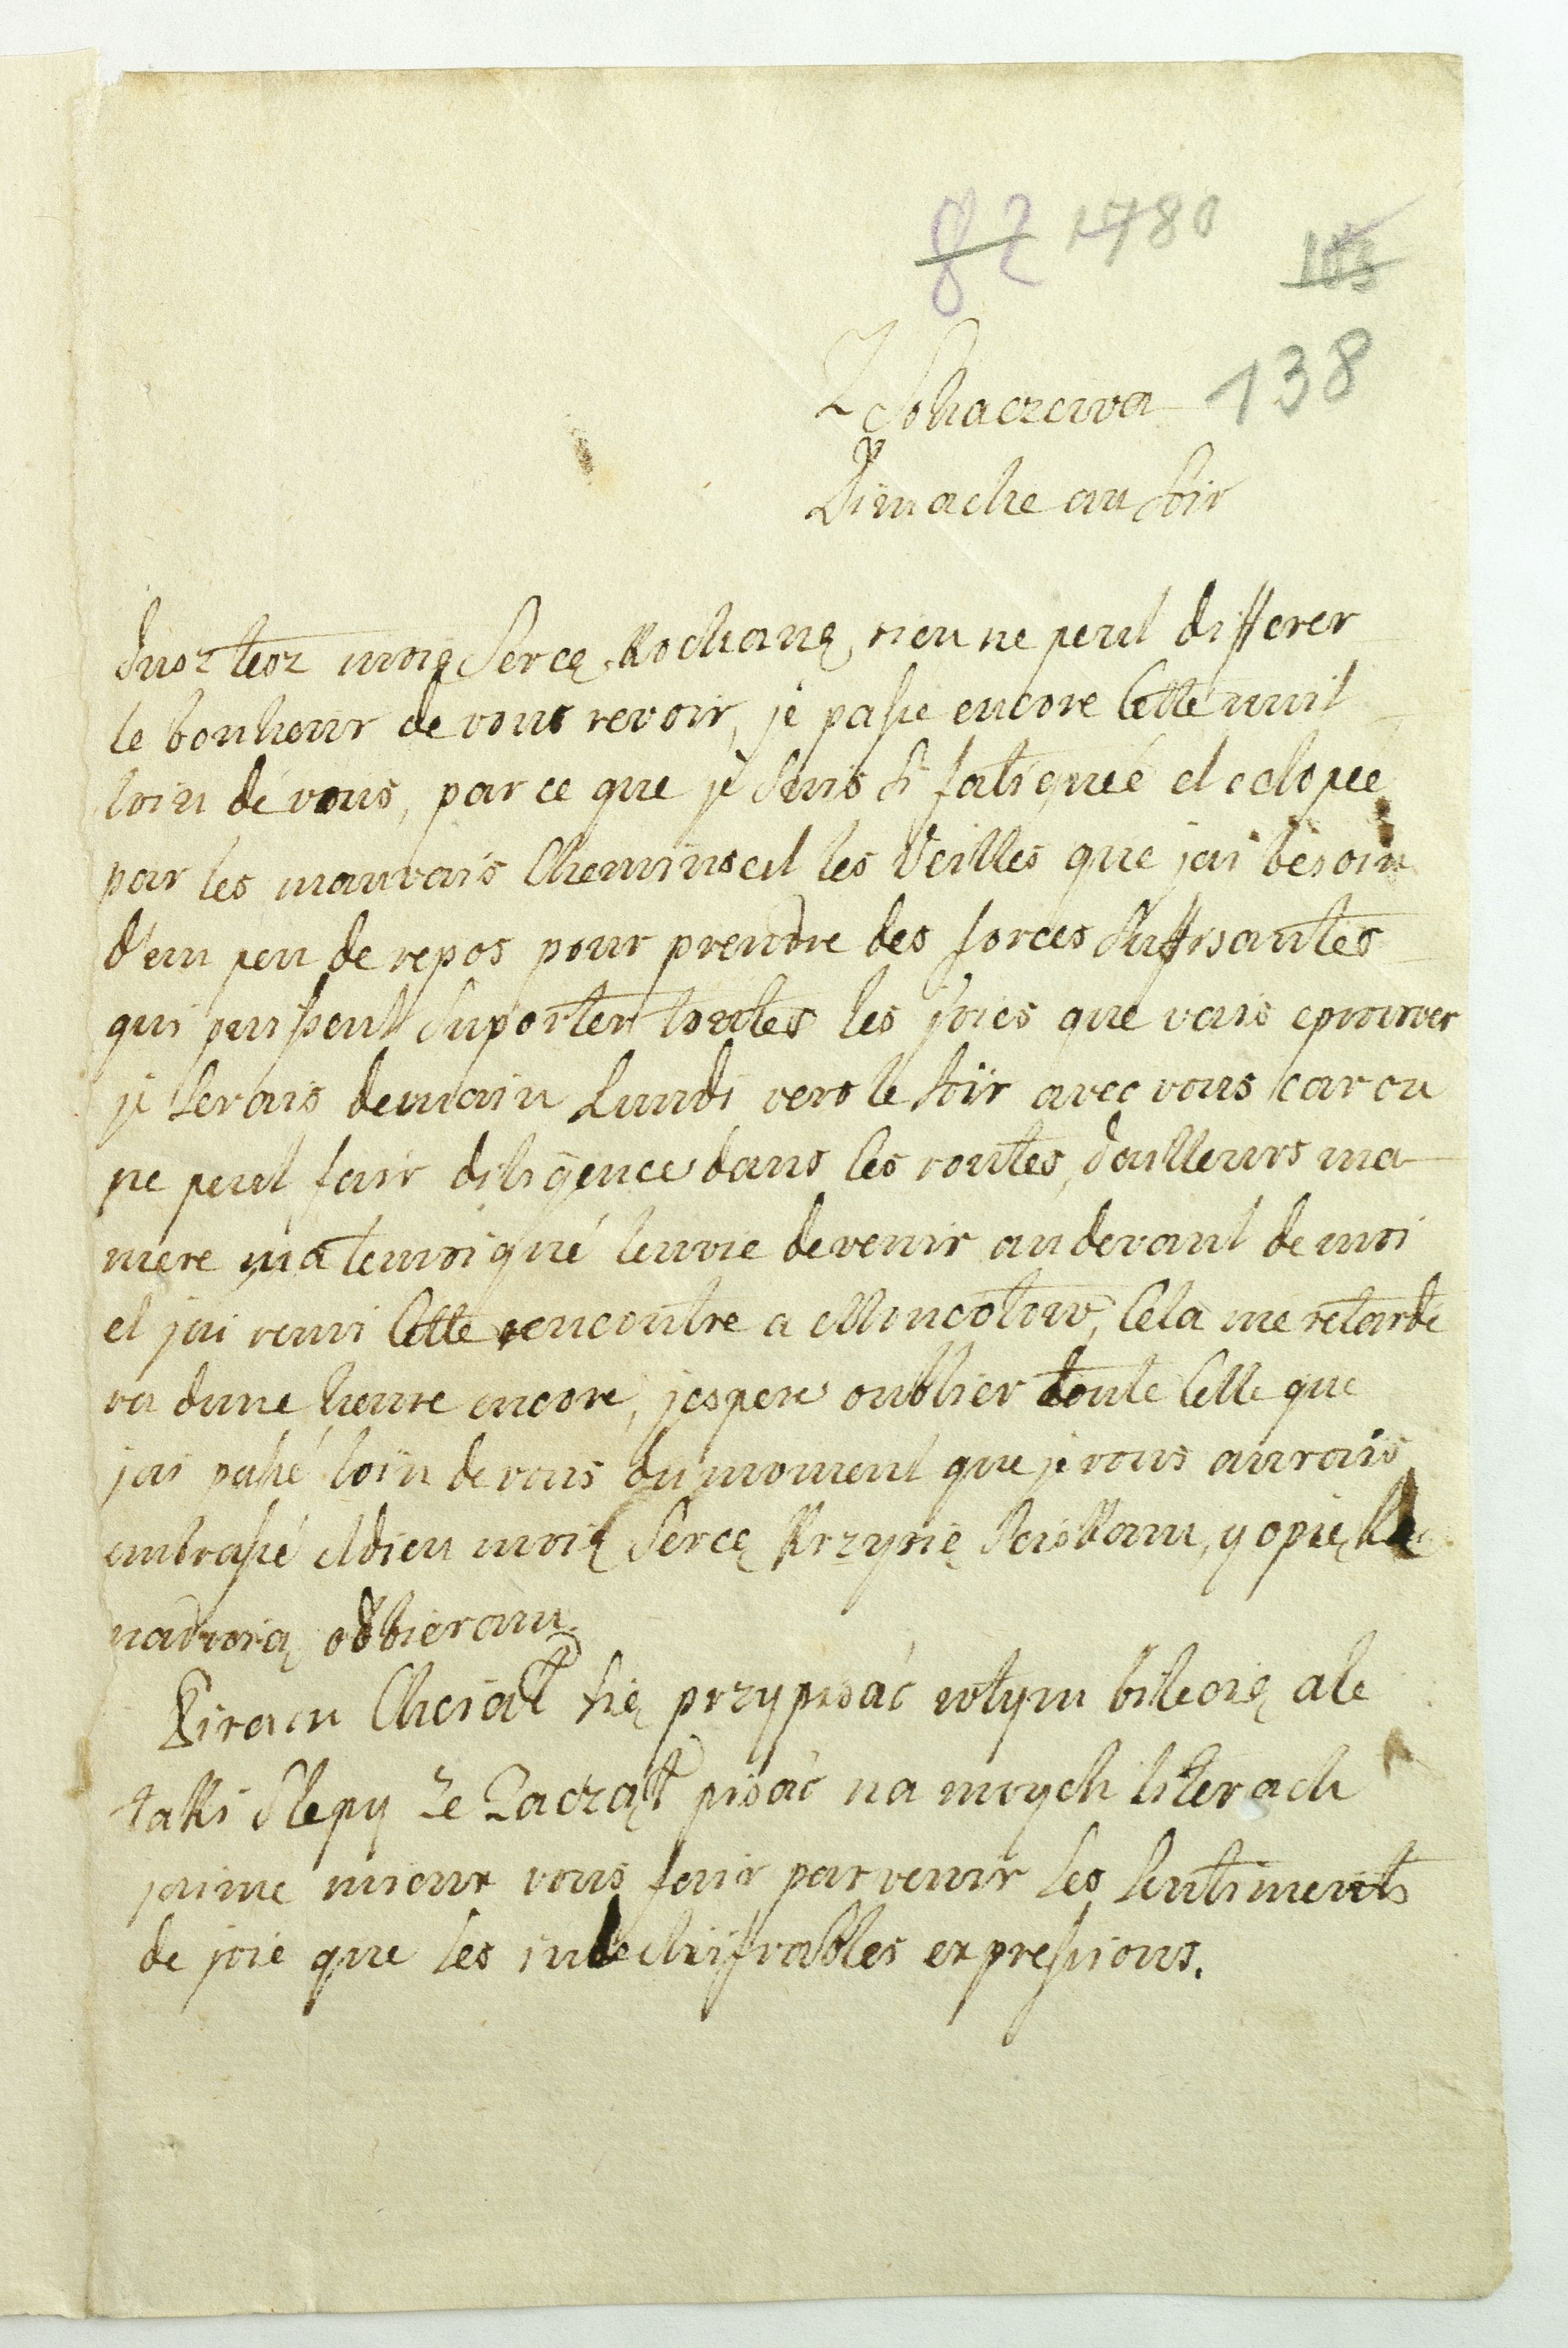 82 1780
103
138
Z Sohaczewa
Dimache au Soir
Juoz teoz moię Sercę Kochanę, rien ne peut differer
le bonheur de vous revoir, je passe encore Cette nuit
loin de vous, par ce que je suis si fatiguée et eclopée
par les mauvais Chemins et les Veilles que jai besoin
d'un peu de repos pour prendre des forces Suffisantes
qui puissent Suporter toutes les joies que vais eprouver
je Serais demain Lundi vers le soir avec vous car on
ne peut fair diligence dans les routes, dailleurs ma
mere ma temoigné lenvie de venir au devant de moi
et jai remi Cette rencontre a Moncotow, Cela me retarde
ra dune heure encore, jespere oublier toute Celle que
jai passé loin de vous du moment que je vous aurais
embrassé Adieu moię Sercę Krzynię Sciskam, y opiękę
nadwoią odbieram.
Piram Chciał się przypisać wtym bileoię ale
takki Slepy Ze Zaczął pisać na moych literach
jaime mieux vous fair parvenir Ses Sentiments
de joie que Ses indechifrables expressions.